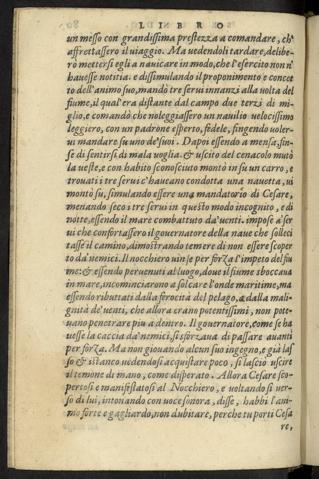 LIBRO
un messo con grandissima prestezza a comandare, ch'
affrettassero il uiaggio. Ma uedendoli tardare, delibe-
rò mettersi egli a nauicare in modo, che l'esercito non n'
hauesse notitia. e dissimulando il proponimento e concet
to dell'animo suo, mandò tre serui innanzi alla uolta del
fiume, il qual'era distante dal campo due terzi di mi-
glio, e comandò che noleggiassero un nauilio uelocissimo
leggiero, con un padrone esperto, fedele, fingendo uoler-
ui mandare su uno de'suoi. Dapoi essendo a mensa, fin-
se di sentirsi di mala uoglia. & uscito del cenacolo mutò
la ueste, e con habito sconosciuto montò in su un carro, e
trouati i tre serui c'haueano condotta una nauetta, ui
montò su, simulando essere una mandatorio di Cesare,
menando seco i tre serui in questo modo incognito, e di
notte, essendo il mare combattuto da'uenti. impose a'ser
ui che confortassero il gouernatore della naue che solleci
tasse il camino, dimostrando temere di non essere scoper
to da'nemici. Il nocchiero uinse per forza l'impeto del fiu
me: & essendo peruenuti al luogo, doue il fiume sboccaua
in mare, incominciarono a solcare l'onde maritime, ma
essendo ributtati dalla ferocità del pelago, e dalla mali-
gnità de'uenti, che allora erano potentissimi, non pote-
uano penetrare piu a dentro. Il gouernatore, come se ha
uesse la caccia da'nemici, si sforzaua di passare auanti
per forza. Ma non giouando alcun suo ingegno, e già las
so & istanco uedendosi acquistare poco, si lasciò uscire
il temone di mano, come disperato. Allora Cesare sco-
pertosi e manifestatosi al Nocchiero, e uoltandosi uer-
so di lui, intonando con uoce sonora, disse, habbi l'ani-
mo forte e gagliardo, non dubitare, perche tu porti Cesa
re,